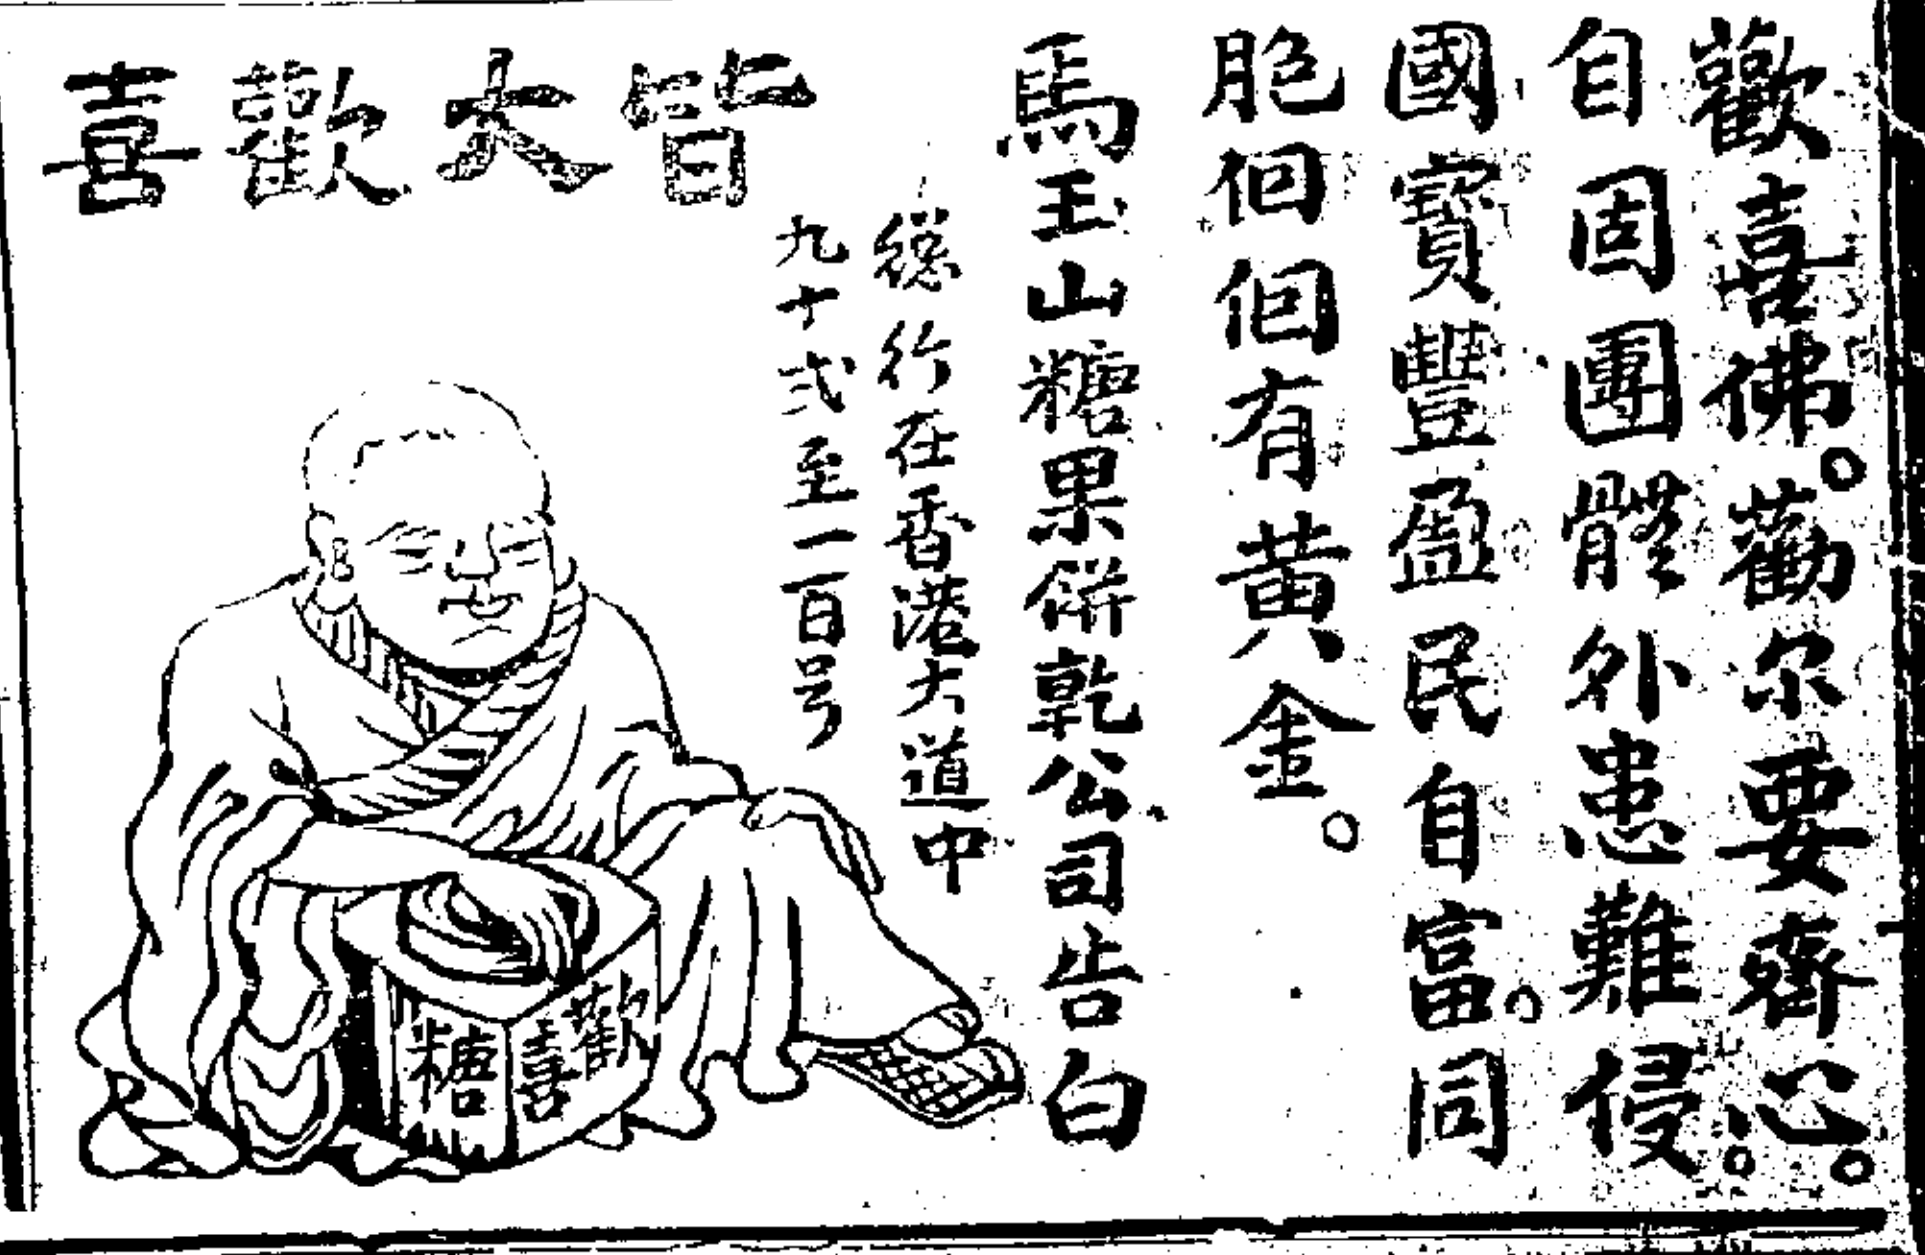 歡喜佛。勸尔要齊心。
自固團體外患難侵。
國寶豐盈民自富。同
胞個個有黃金。
馬玉山糖果餅乾公司告白
總行在香港大道中
九十弍至一百号
皆大歡喜
歡喜
糖